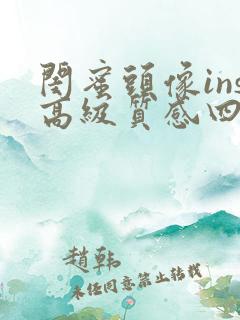 閨蜜頭像ins
高級質感四
趙韩
未任同意禁止转载